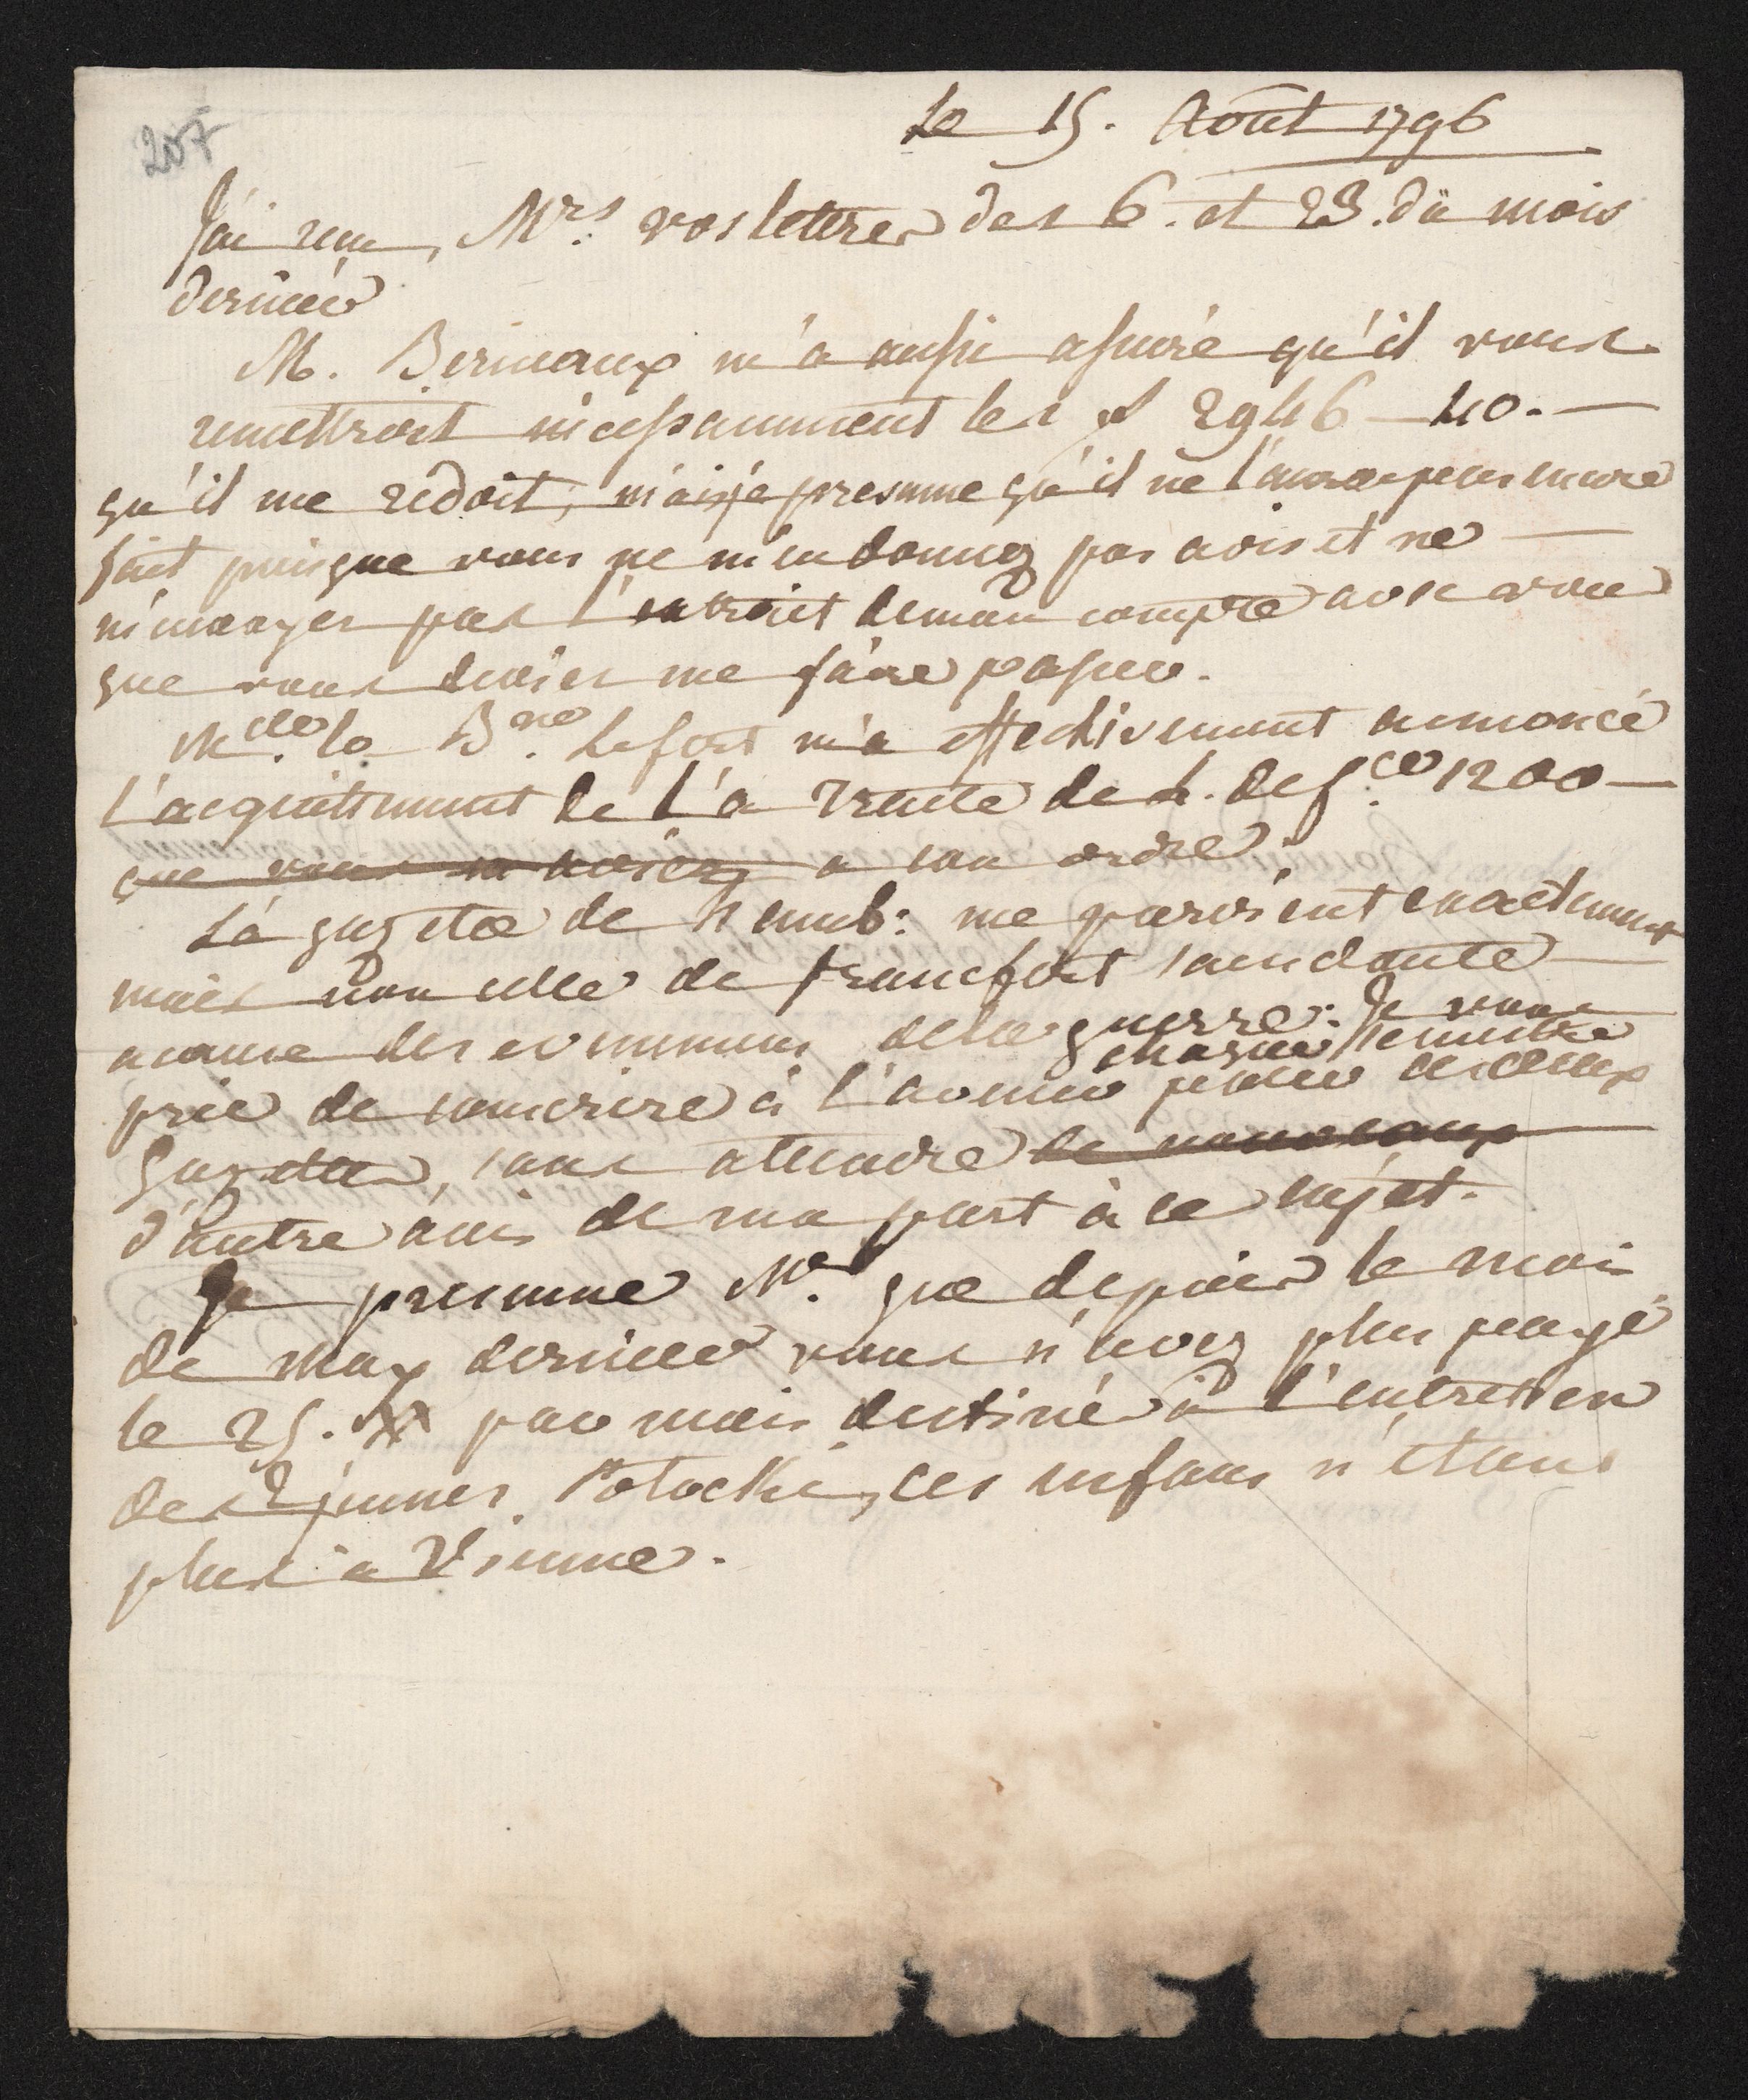 207
Le 15. Août 1796
J'ai reçu, Mrs. vos lettres des 6. et 23. du mois
dernier
M. Bernaux m'a aussi assuré qu'il vous
remettroit incessamment les 2946 - 40. -
qu'il me redoit, mais je presume qu'il ne l'aura pas encore
fait puisque vous ne m'en donnez pas avis et ne
m'envoyes pas l'extrait de mon compte avec vous
que vous deviez me faire passer.
Mde. la Bne. Lefort m'a effectivement annoncé
l'acquittement de la Traite de L. de fce. 1200 -
que vous m'avisez a son ordre.
La gazette de Hamb: me parvient exactement
mais non celle de francfort sans doute
a cause des evenemens de la guerre. Je vous
chaque semestre
prie de souscrire à l'avenir pour ces deux
Gazettes, sans attendre de nouveaux
d'autre avis de ma part à ce sujet.
Je presume Mrs. que depuis le mois
de may dernier vous n'avez plus payé
le 25. # par mois destiné à l'entretien
des 2 jeunes Potocki, ces enfans n'étant
plus à Vienne.